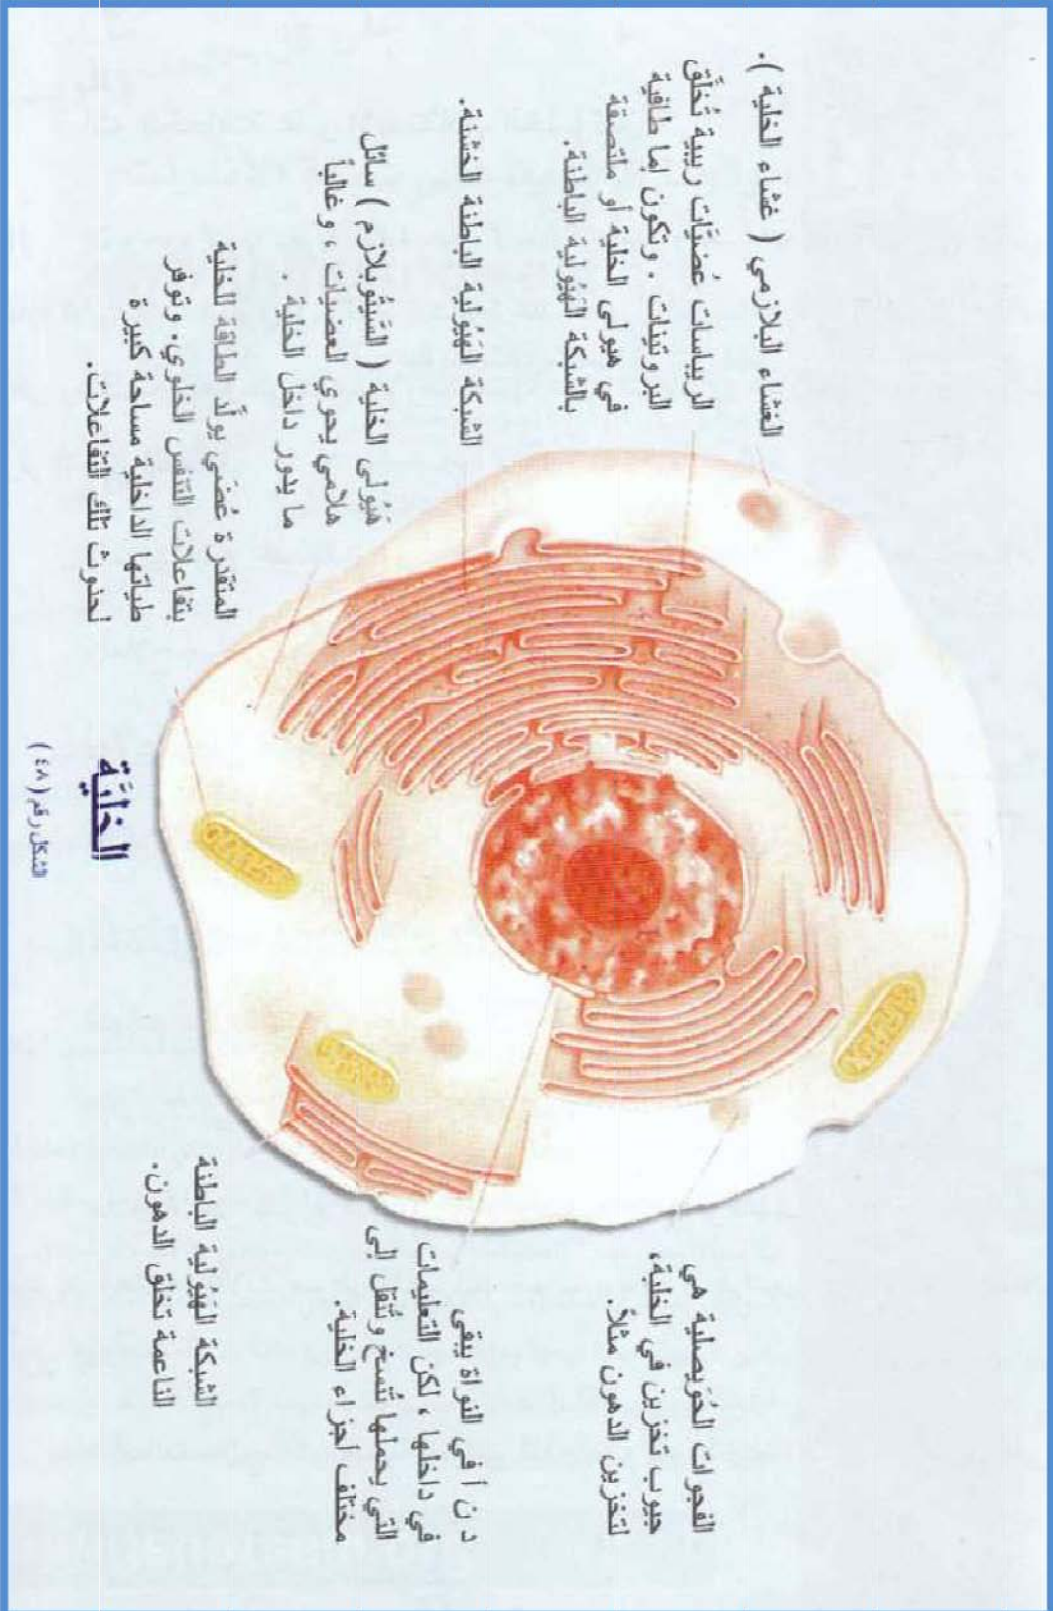 الغشاء البلازمي ( غشاء الخلية ).
الريباسات عُضيَّات ريبية تُخلَّق
البروتينات . وتكون إما طافية
في هيولى الخلية أو ملتصقة
بالشبكة الهَيُولية الباطنة.
الشبكة الهَيُولية الباطنة الخشنة.
هَيُولى الخلية ( السَّيتُوبلازم ) سائل
هلامي يحوي العضيات ، وغالباً
ما يدور داخل الخلية .
المتقدرة عُضَي يولّد الطاقة للخلية
بتفاعلات التنفس الخلوي. وتوفر
طياتها الداخلية مساحة كبيرة
لحدوث تلك التفاعلات.
الفجوات الحُوَيصلية هي
جيوب تخزين في الخلية،
لتخزين الدهون مثلاً.
د ن أ في النواة يبقى
في داخلها ، لكن التعليمات
التي يحملها تُنسخ وتُنقل إلى
مختلف أجزاء الخلية.
الشبكة الهَيُولية الباطنة
الناعمة تخلق الدهون.
الخليَّة
الشكل رقم ( ٤٨ )